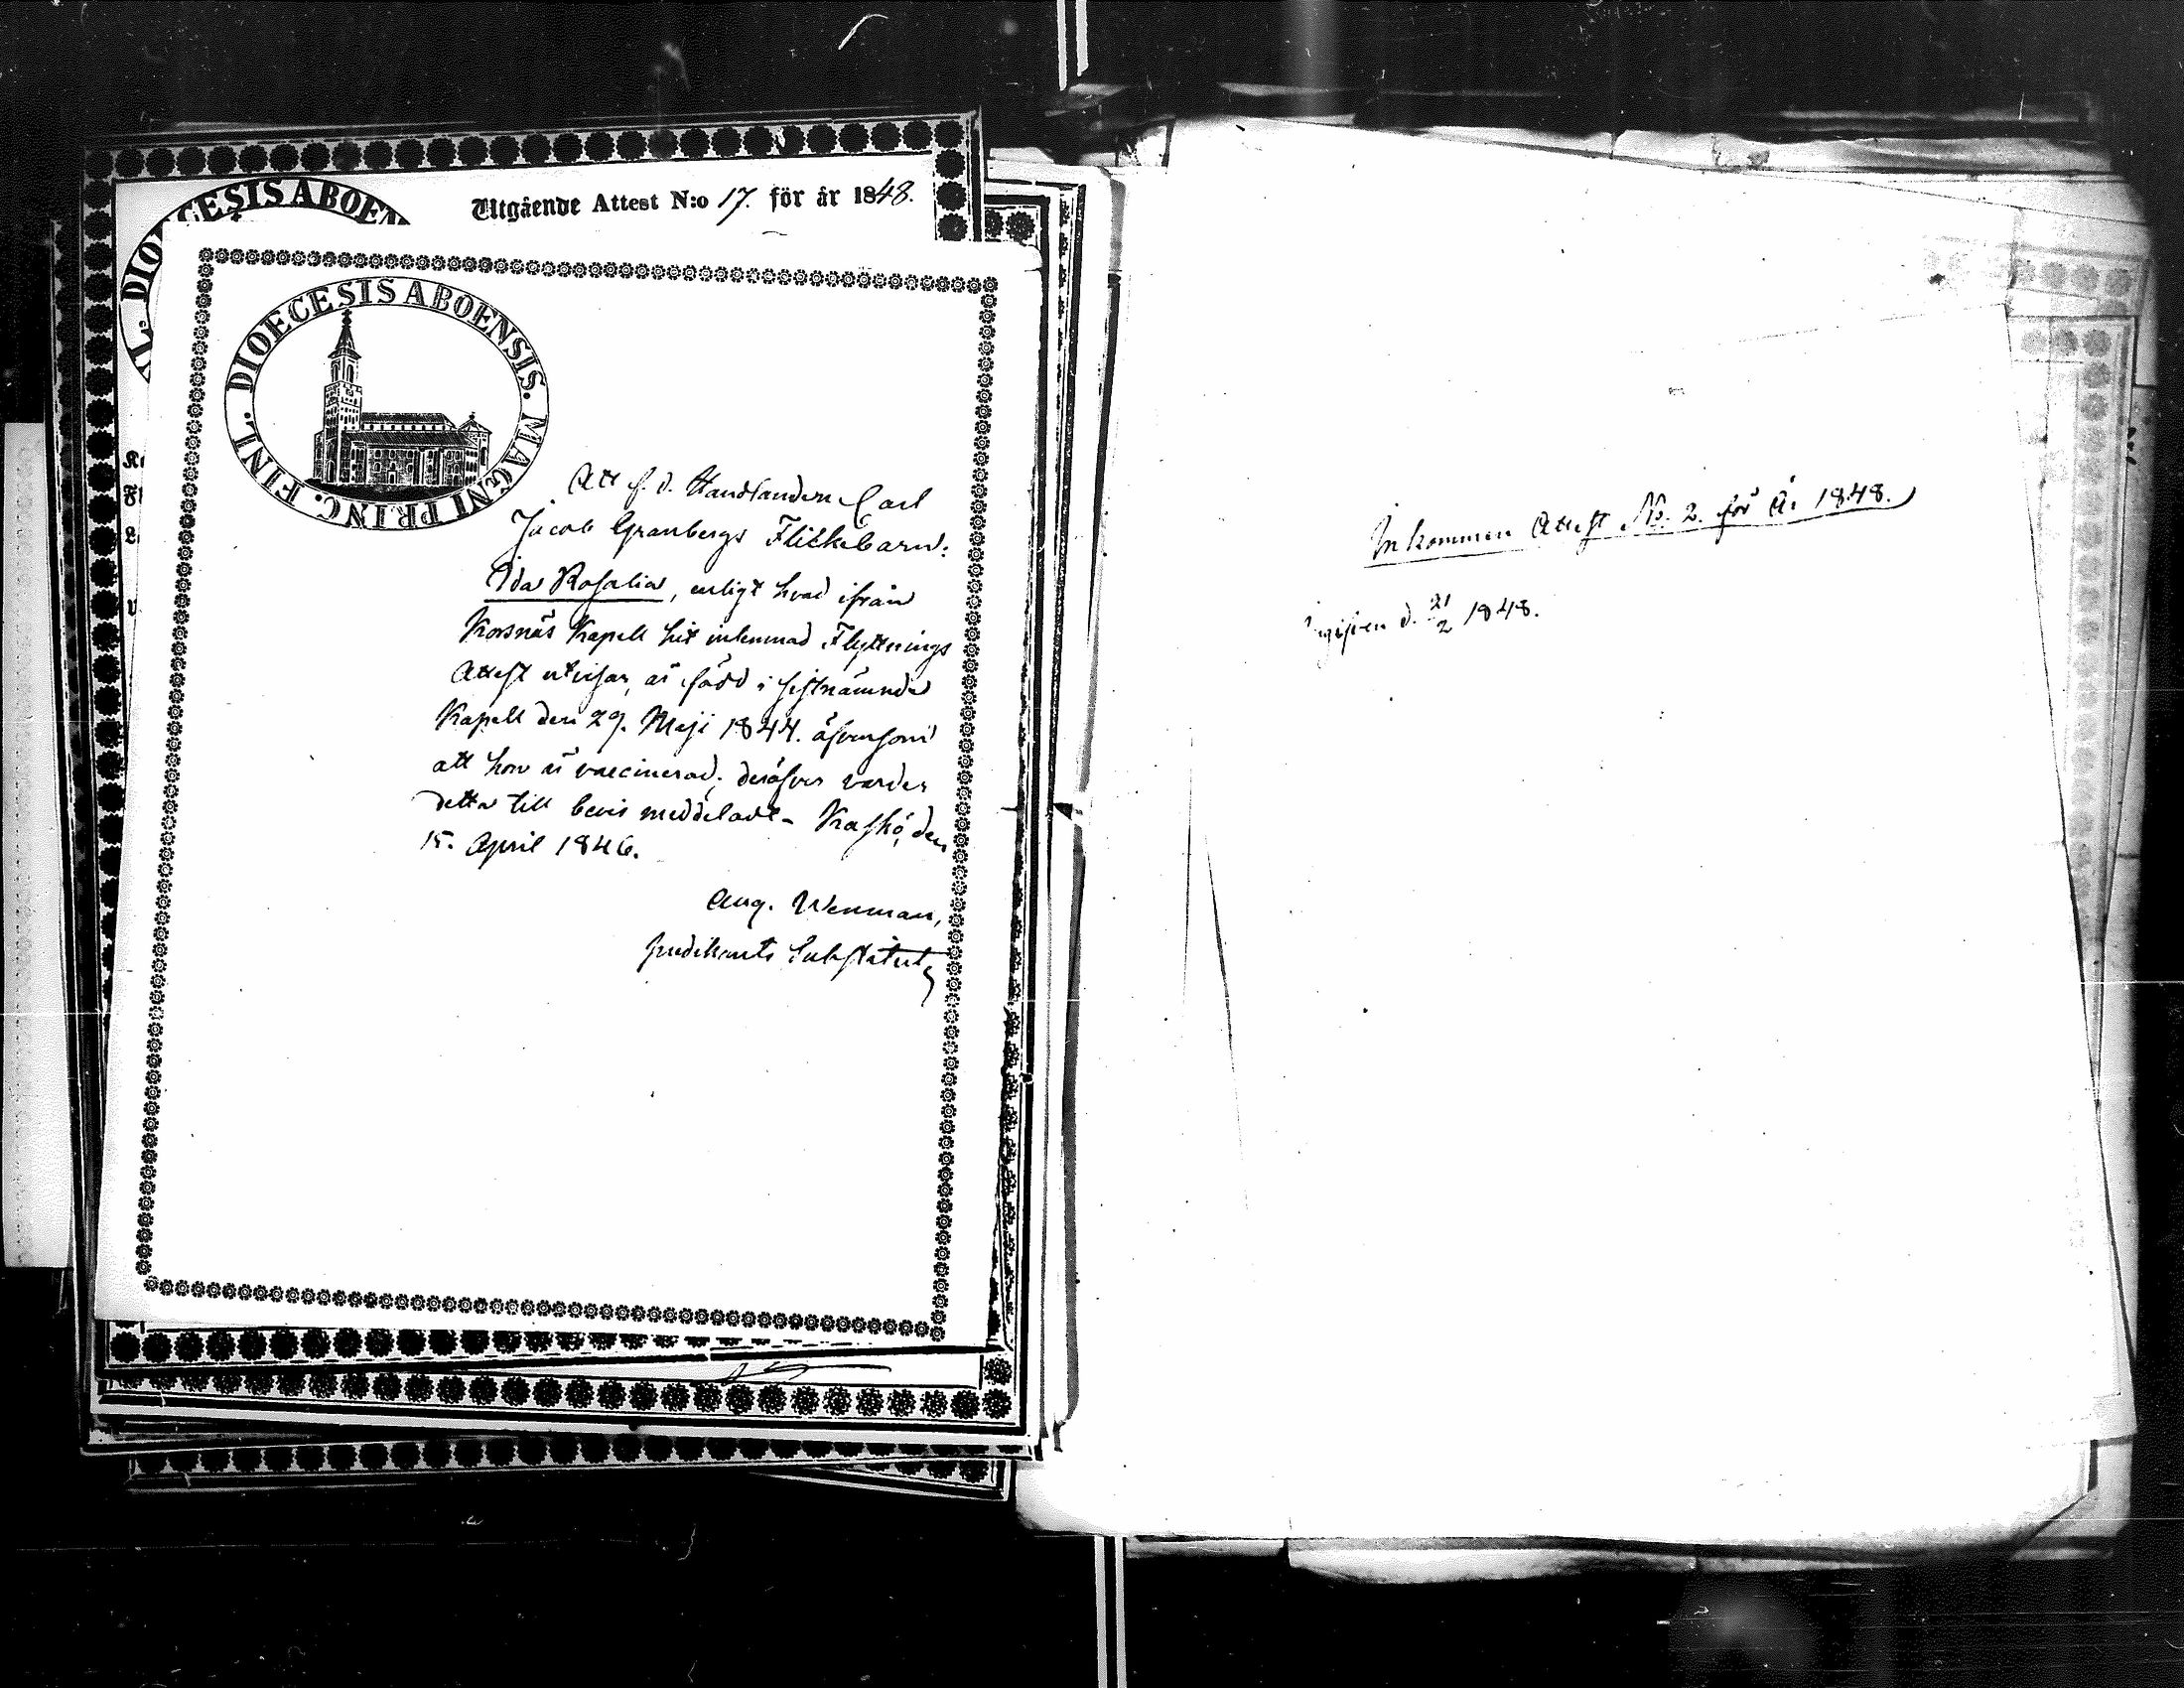 DIOECESIS ABOEN
Utgående Attest N:o 17. för år 1848.
DIOECESIS ABOENSIS. MAGNI PRINC. FINL.
Att f. d. Handlanden Carl
Jacob Granbergs Flickebarn:
Ida Rosalia, enligt hvad ifrån
Korsnäs Kapell hit inlemnad Flyttnings
Attest utvisar, är född i sistnämnde
Kapell den 29. Maji 1844. äfvensom
att hon är vaccinerad; deröfver varder
detta till bevis meddeladt. Kaskö, den
15. April 1846.
Aug. Wenman,
predikants Substitut
Inkommen Attest No. 2. för År 1848.
d. 21/2 1848.